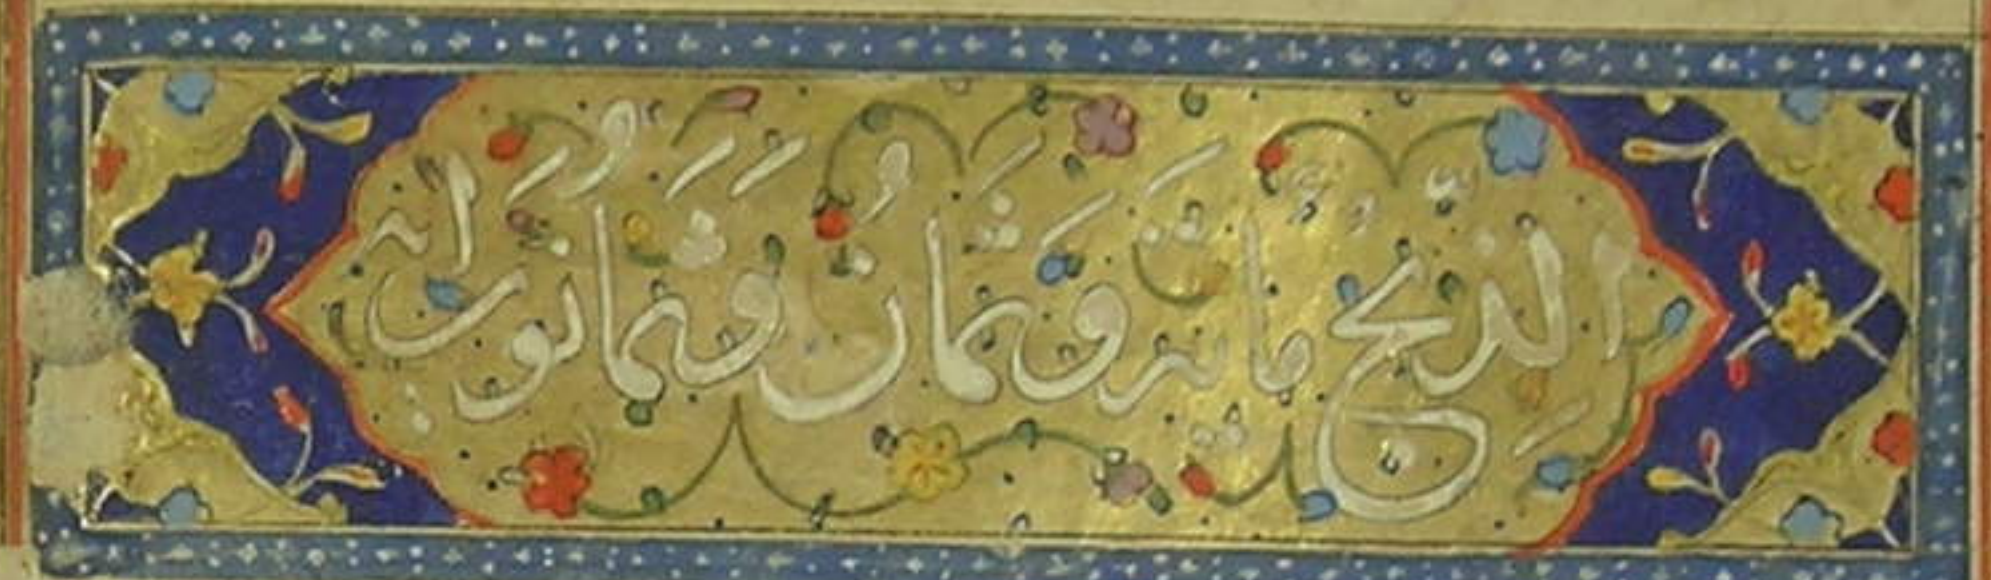 الذبح ماية وثمان وثمانون اية